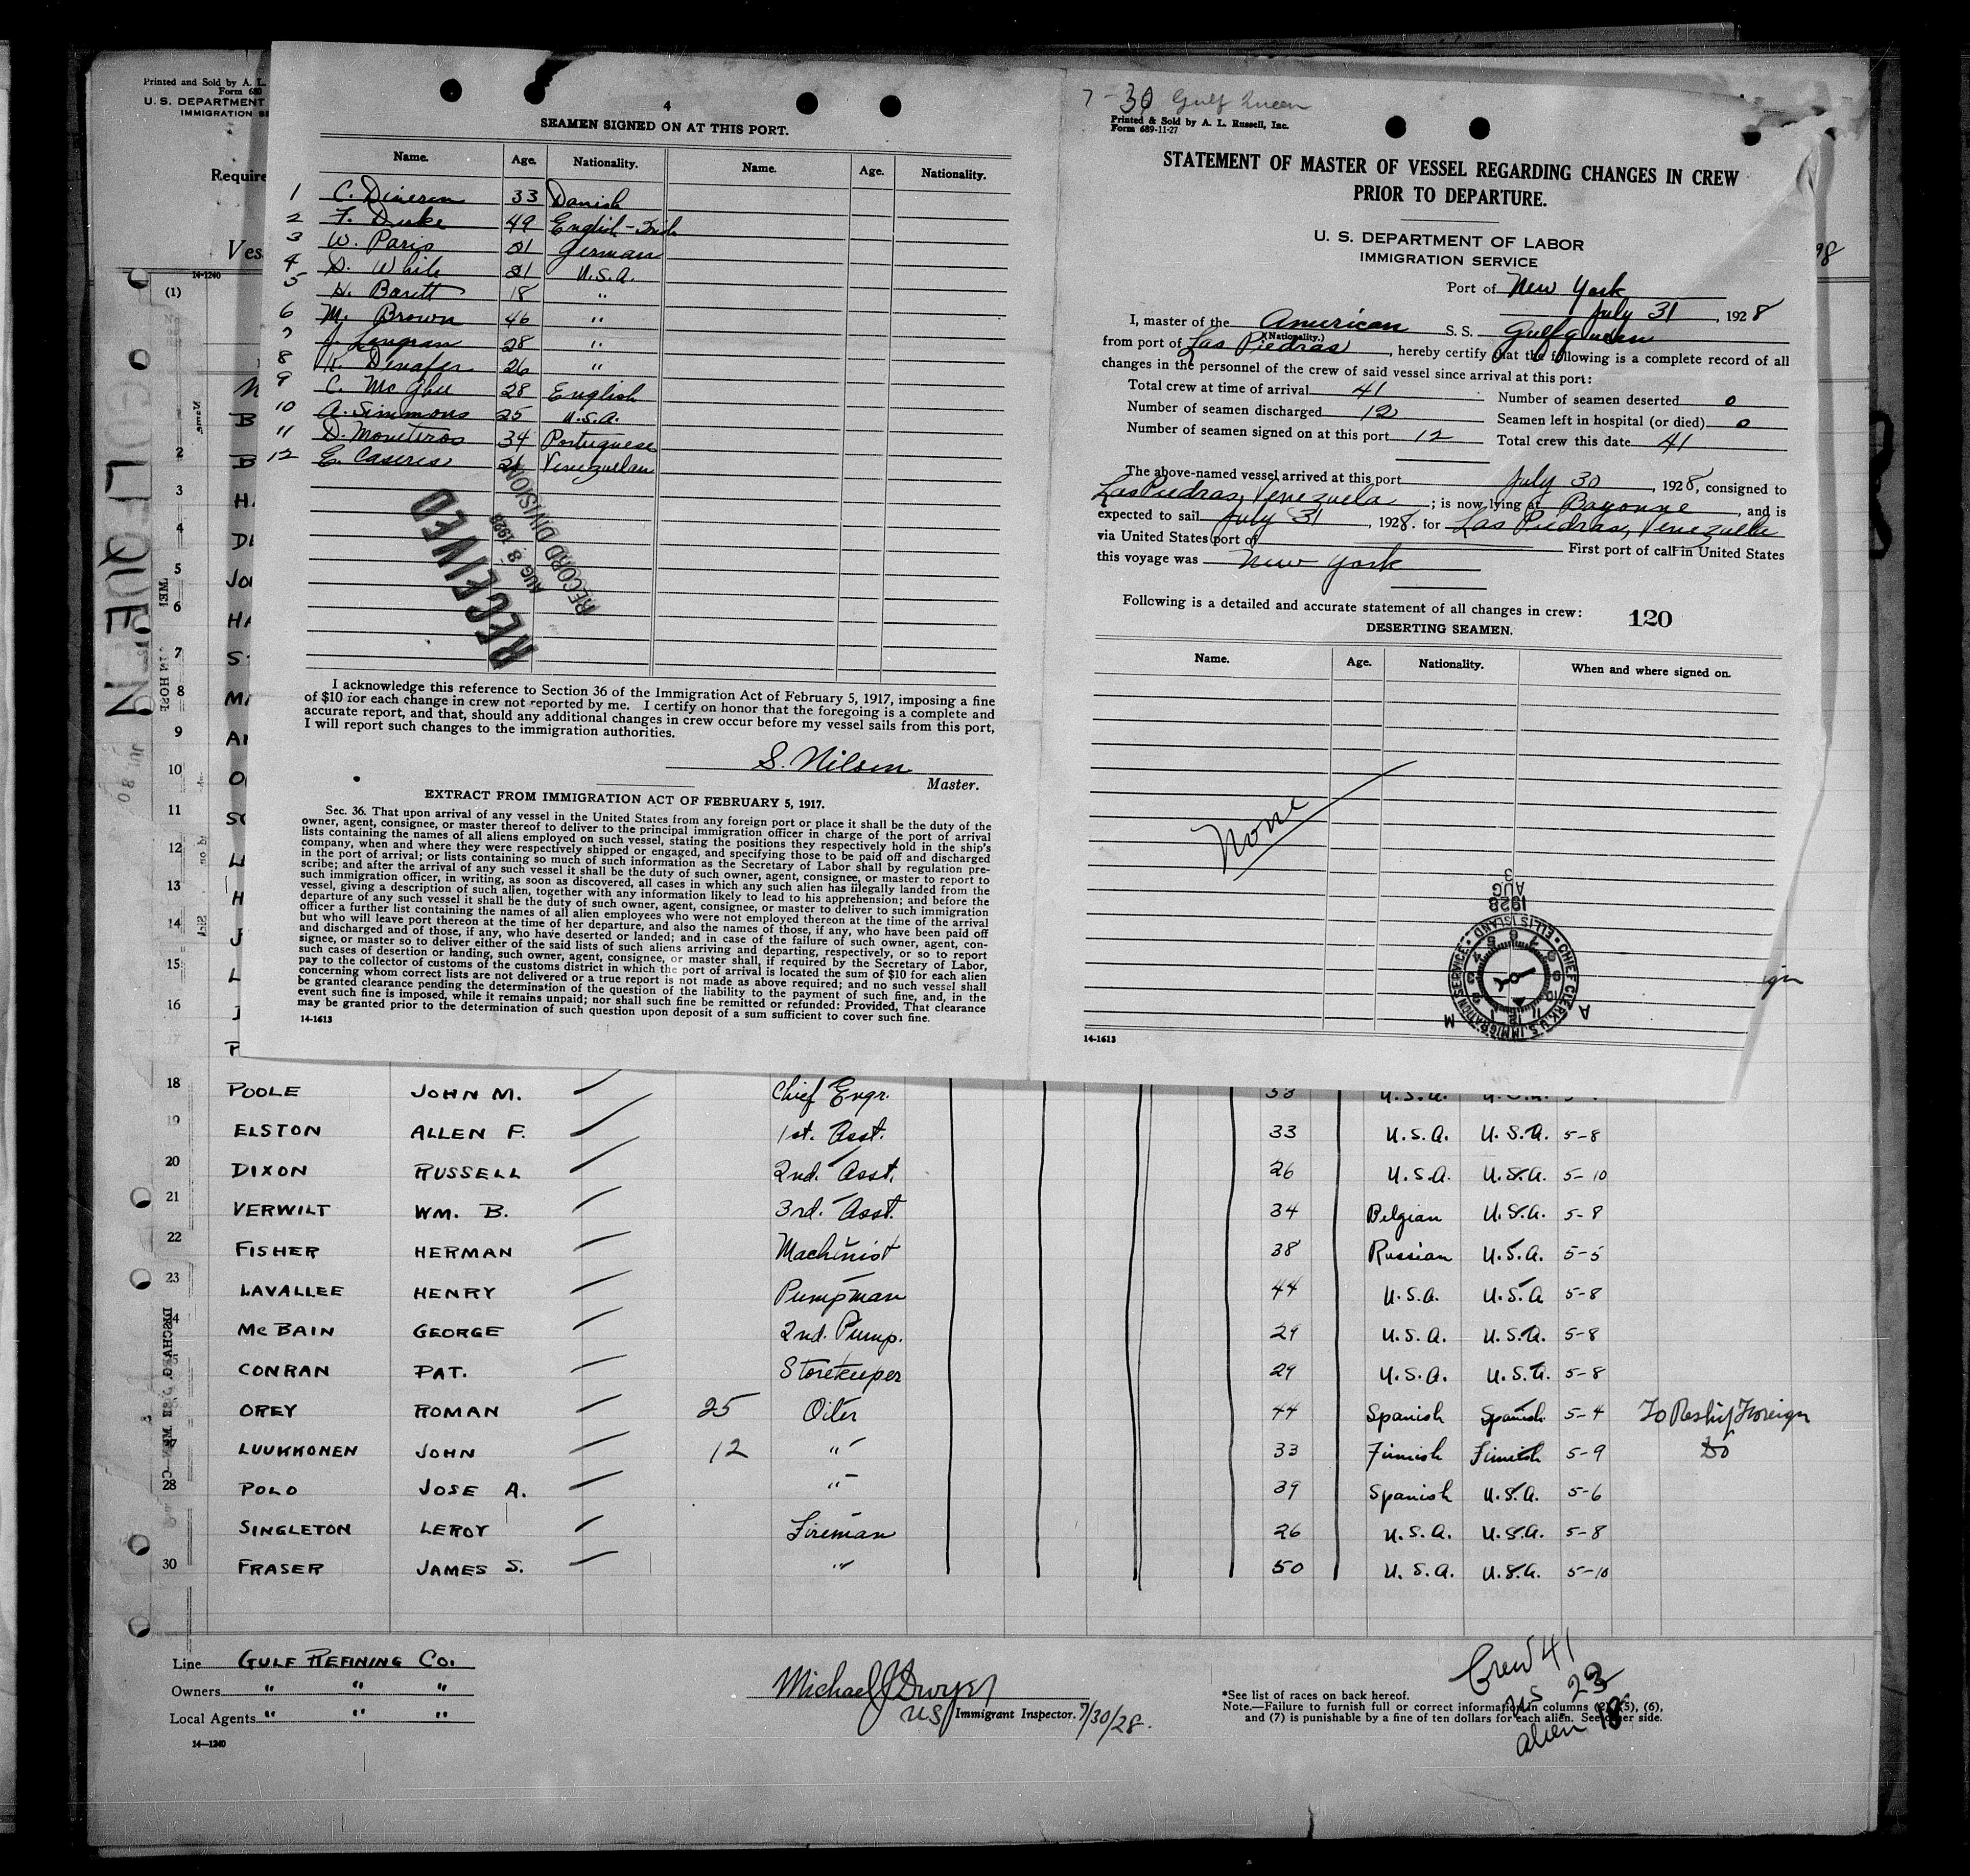 Printed and Sold by A. L.
Form 680
U. S. DEPARTMENT
IMMIGRATION SE
Require
Ves
14-1240
(1)
GULFQUEEN
4
SEAMEN SIGNED ON AT THIS PORT.
Name. Age. Nationality. Name. Age. Nationality.
1 C. Dineren 33 Danish
2 F. Duke 49 English-Irish
3 W. Paris 21 German
4 D. White 21 U.S.A.
5 H. Barett 18 "
6 M. Brown 46 "
7 J. Langran 28 "
8 K. Denafer 26 "
9 C. McGhu 28 English
10 A. Simmons 25 U.S.A.
11 D. Moniteros 34 Portuguese
12 E. Caseres 21 Venezuelan
RECEIVED
AUG. 3 1928
RECORD DIVISION
I acknowledge this reference to Section 36 of the Immigration Act of February 5, 1917, imposing a fine
of $10 for each change in crew not reported by me. I certify on honor that the foregoing is a complete and
accurate report, and that, should any additional changes in crew occur before my vessel sails from this port,
I will report such changes to the immigration authorities.
S. Nilsen
Master.
EXTRACT FROM IMMIGRATION ACT OF FEBRUARY 5, 1917.
Sec. 36. That upon arrival of any vessel in the United States from any foreign port or place it shall be the duty of the
owner, agent, consignee, or master thereof to deliver to the principal immigration officer in charge of the port of arrival
lists containing the names of all aliens employed on such vessel, stating the positions they respectively hold in the ship's
company, when and where they were respectively shipped or engaged, and specifying those to be paid off and discharged
in the port of arrival; or lists containing so much of such information as the Secretary of Labor shall by regulation pre-
scribe; and after the arrival of any such vessel it shall be the duty of such owner, agent, consignee, or master to report to
such immigration officer, in writing, as soon as discovered, all cases in which any such alien has illegally landed from the
vessel, giving a description of such alien, together with any information likely to lead to his apprehension; and before the
departure of any such vessel it shall be the duty of such owner, agent, consignee, or master to deliver to such immigration
officer a further list containing the names of all alien employees who were not employed thereon at the time of the arrival
but who will leave port thereon at the time of her departure, and also the names of those, if any, who have been paid off
and discharged and of those, if any, who have deserted or landed; and in case of the failure of such owner, agent, con-
signee, or master so to deliver either of the said lists of such aliens arriving and departing, respectively, or so to report
such cases of desertion or landing, such owner, agent, consignee, or master shall, if required by the Secretary of Labor,
pay to the collector of customs of the customs district in which the port of arrival is located the sum of $10 for each alien
concerning whom correct lists are not delivered or a true report is not made as above required; and no such vessel shall
be granted clearance pending the determination of the question of the liability to the payment of such fine, and, in the
event such fine is imposed, while it remains unpaid; nor shall such fine be remitted or refunded: Provided, That clearance
may be granted prior to the determination of such question upon deposit of a sum sufficient to cover such fine.
14-1613
7-30 Gulf Queen
Printed & Sold by A. L. Russell, Inc.
Form 689-11-27
STATEMENT OF MASTER OF VESSEL REGARDING CHANGES IN CREW
PRIOR TO DEPARTURE.
U. S. DEPARTMENT OF LABOR
IMMIGRATION SERVICE
Port of New York
July 31, 1928
I, master of the American S. S. Gulfqueen
(Nationality.)
from port of Las Piedras, hereby certify that the following is a complete record of all
changes in the personnel of the crew of said vessel since arrival at this port:
Total crew at time of arrival 41 Number of seamen deserted 0
Number of seamen discharged 12 Seamen left in hospital (or died) 0
Number of seamen signed on at this port 12 Total crew this date 41
The above-named vessel arrived at this port July 30, 1928, consigned to
Las Piedras, Venezuela; is now lying at Bayonne, and is
expected to sail July 31, 1928, for Las Piedras, Venezuela
via United States port of First port of call in United States
this voyage was New York
Following is a detailed and accurate statement of all changes in crew: 120
DESERTING SEAMEN.
Name. Age. Nationality. When and where signed on.
None
AUG 3 1928
CHIEF CLERK, U.S. IMMIGRATION SERVICE • ELLIS ISLAND •
A M
14-1613
18 POOLE JOHN M. Chief Engr. 53 U.S.A. U.S.A.
19 ELSTON ALLEN F. 1st. Asst. 33 U.S.A. U.S.A. 5-8
20 DIXON RUSSELL 2nd. Asst. 26 U.S.A. U.S.A. 5-10
21 VERWILT WM. B. 3rd. Asst. 34 Belgian U.S.A. 5-8
22 FISHER HERMAN Machinist 38 Russian U.S.A. 5-5
23 LAVALLEE HENRY Pumpman 44 U.S.A. U.S.A 5-8
McBAIN GEORGE 2nd. Pump. 29 U.S.A. U.S.A. 5-8
CONRAN PAT. Storekeeper 29 U.S.A. U.S.A. 5-8
OREY ROMAN 25 Oiler 44 Spanish Spanish 5-4 To Reship Foreign
LUUKKONEN JOHN 12 " 33 Finnish Finnish 5-9 Do
28 POLO JOSE A. " 39 Spanish U.S.A. 5-6
SINGLETON LEROY Fireman 26 U.S.A. U.S.A. 5-8
30 FRASER JAMES S. " 50 U.S.A. U.S.A. 5-10
Line GULF REFINING CO.
Owners " " "
Local Agents " " "
14-1240
Michael J Dwyer
US Immigrant Inspector. 7/30/28.
*See list of races on back hereof.
Note.—Failure to furnish full or correct information in columns (2), (5), (6),
and (7) is punishable by a fine of ten dollars for each alien. See other side.
Crew 41
US 23
alien 18